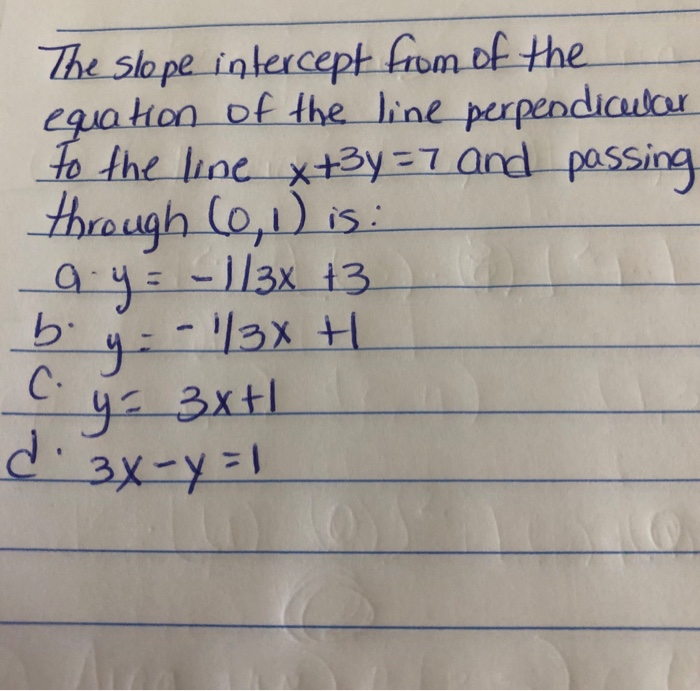 The slope intercept from of the
equation of the line perpendicular
to the line x+3y=7 and passing
through (0,1) is:
a. y = -1/3x +3
b. y = -1/3x +1
c. y = 3x+1
d. 3x-y=1